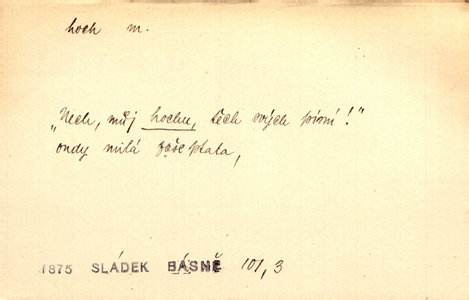 hoch m.
„Nech, můj hochu, těch svých písní!"
ondy milá zašeptala,
1875 SLÁDEK BÁSNĚ 101,3